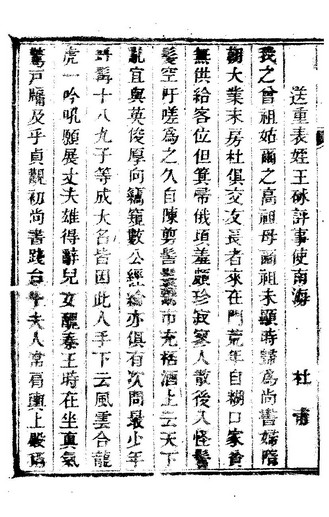 送重表姪王砅評事使南海
杜甫
我之曾祖姑爾之高祖母爾祖未顯時歸為尚書婦隋
朝大業末房杜俱交友長者來在門荒年自糊口家貧
無供給客位但箕帚俄頃羞頗珍寂寥人散後入怪鬢
髮空吁嗟為之久自陳剪髻鬟市充杯酒上云天下
亂宜與英俊厚向竊窺數公經綸亦俱有次問最少年
虬髯十八九子等成大名皆因此人手下云風雲合龍
虎一吟吼願展丈夫雄得辭兒女醜秦王時在坐真氣
驚戶牖及乎貞觀初尚書踐台斗夫人常肩輿上殿稱